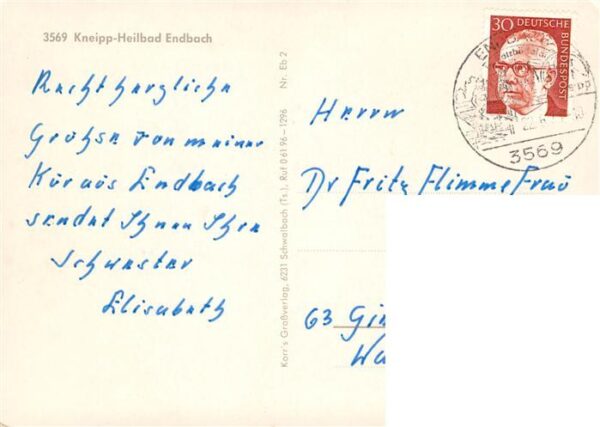 3569 Kneipp-Heilbad Endbach
Recht herzliche
Grüße von meiner
Kur aus Endbach
sendet Ihnen Ihre
Schwester
Elisabeth
Korr's Großverlag, 6231 Schwalbach (Ts.), Ruf 0 61 96 – 1296 Nr. Eb 2
30 DEUTSCHE
BUNDESPOST
3569
Herrn
Dr Fritz
63